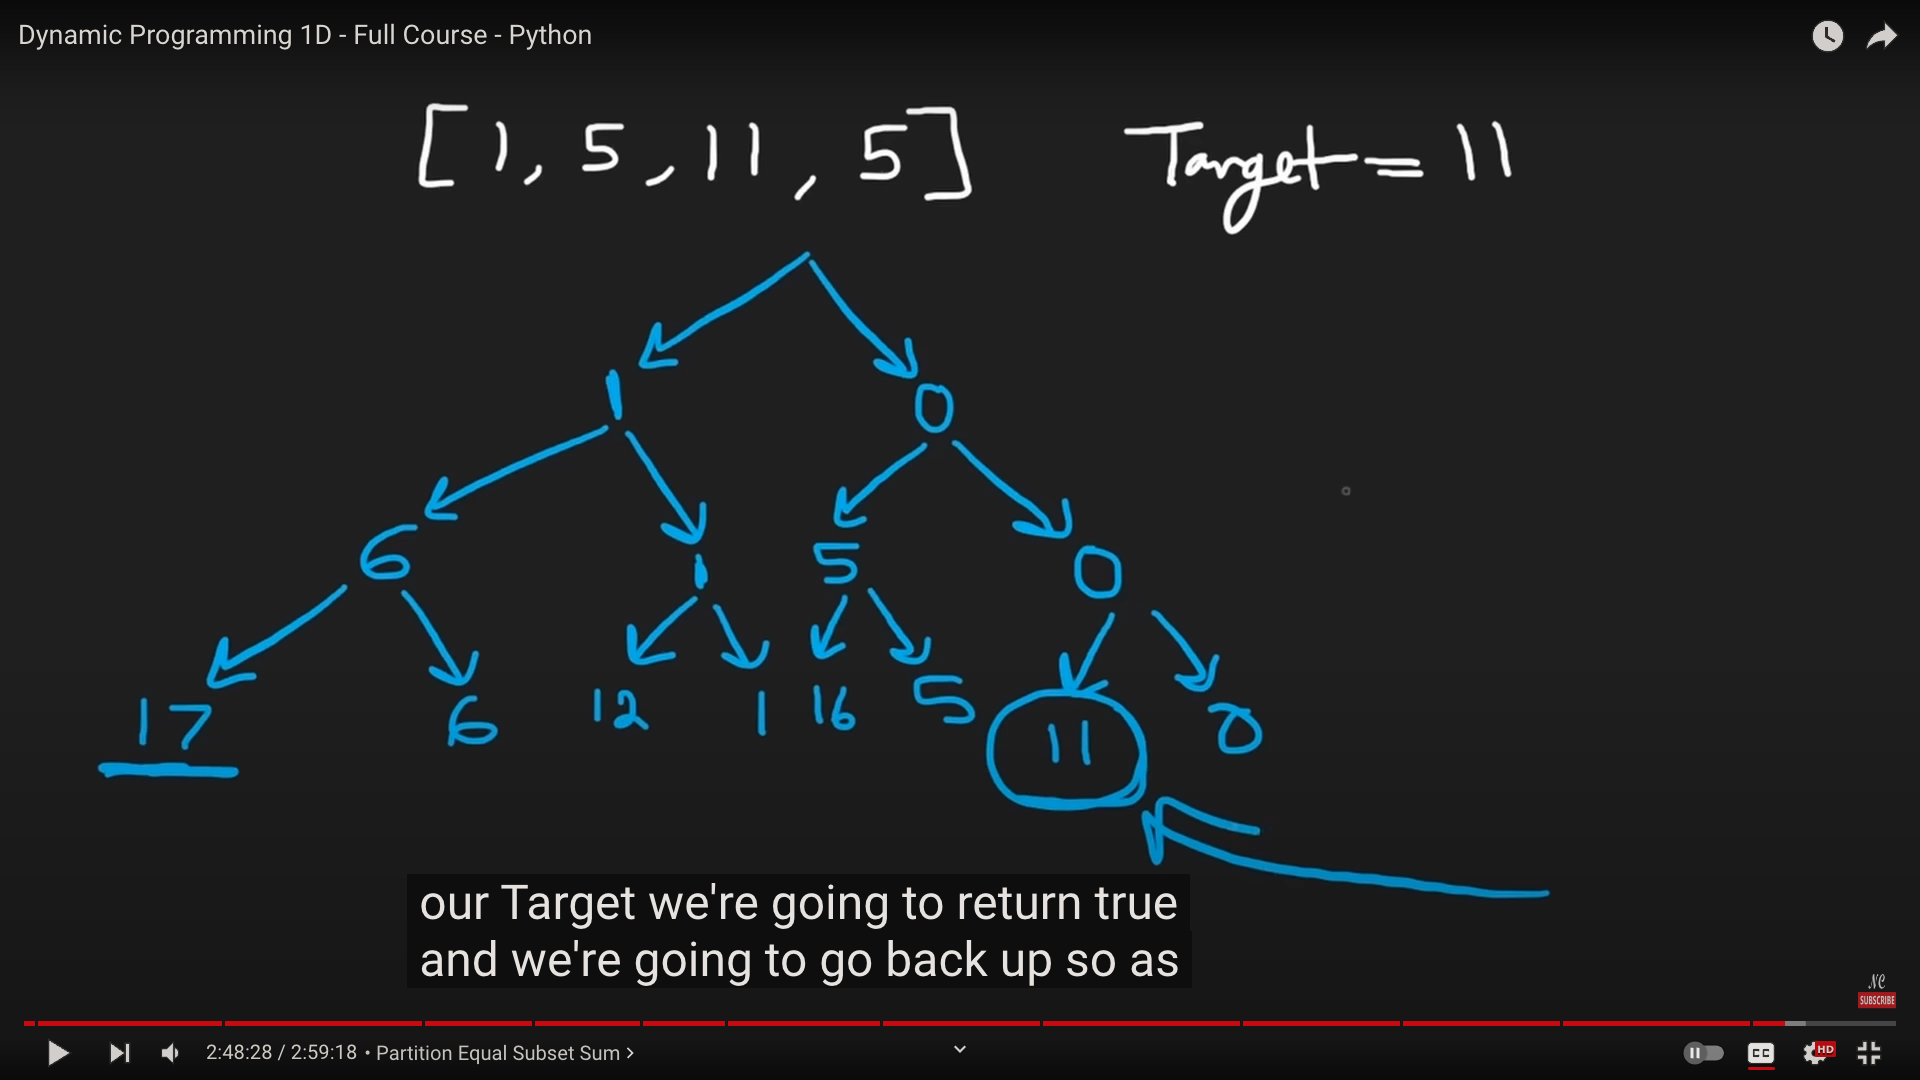 Dynamic Programming 1D - Full Course - Python
[1, 5, 11, 5] Target = 11
1 0
6 1 5 0
17 6 12 1 16 5 11 0
our Target we're going to return true
and we're going to go back up so as
NC
SUBSCRIBE
2:48:28 / 2:59:18 • Partition Equal Subset Sum >
CC HD